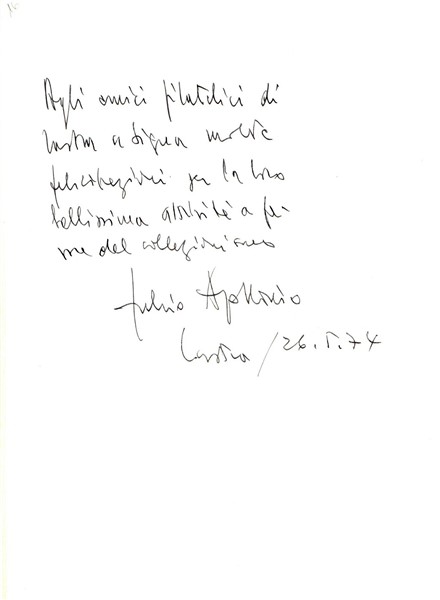 Agli amici filatelici di
Lastra a Signa molte
felicitazioni per la loro
bellissima attività a fa-
vore del collezionismo
Fulvio Apollonio
Lastra / 26.5.74